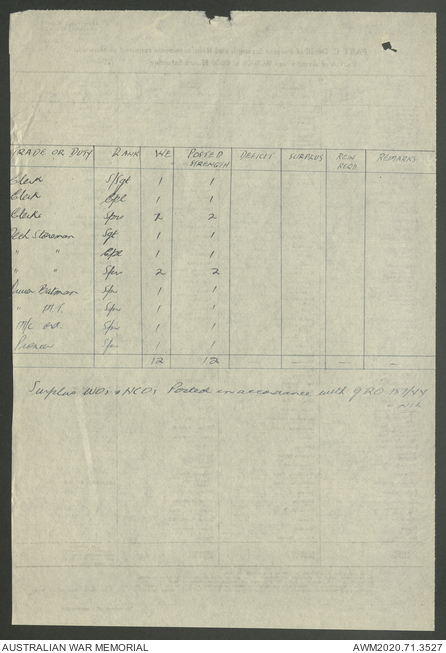 TRADE OR DUTY RANK WE POSTED STRENGTH DEFICIT SURPLUS REMARKS
Clerk S/Sgt 1 1
Clerk Cpl 1 1
Clerks Spr 2 2
Tech Storeman Sgt 1 1
" " Cpl 1 1
" " Spr 2 2
Batman Spr 1 1
" M.T. Spr 1 1
M/C Spr 1 1
Pioneer Spr 1 1
12 12 — — —
Surplus WOs & NCOs Posted in accordance with GRO 157/44
- NIL
AUSTRALIAN WAR MEMORIAL
AWM2020.71.3527